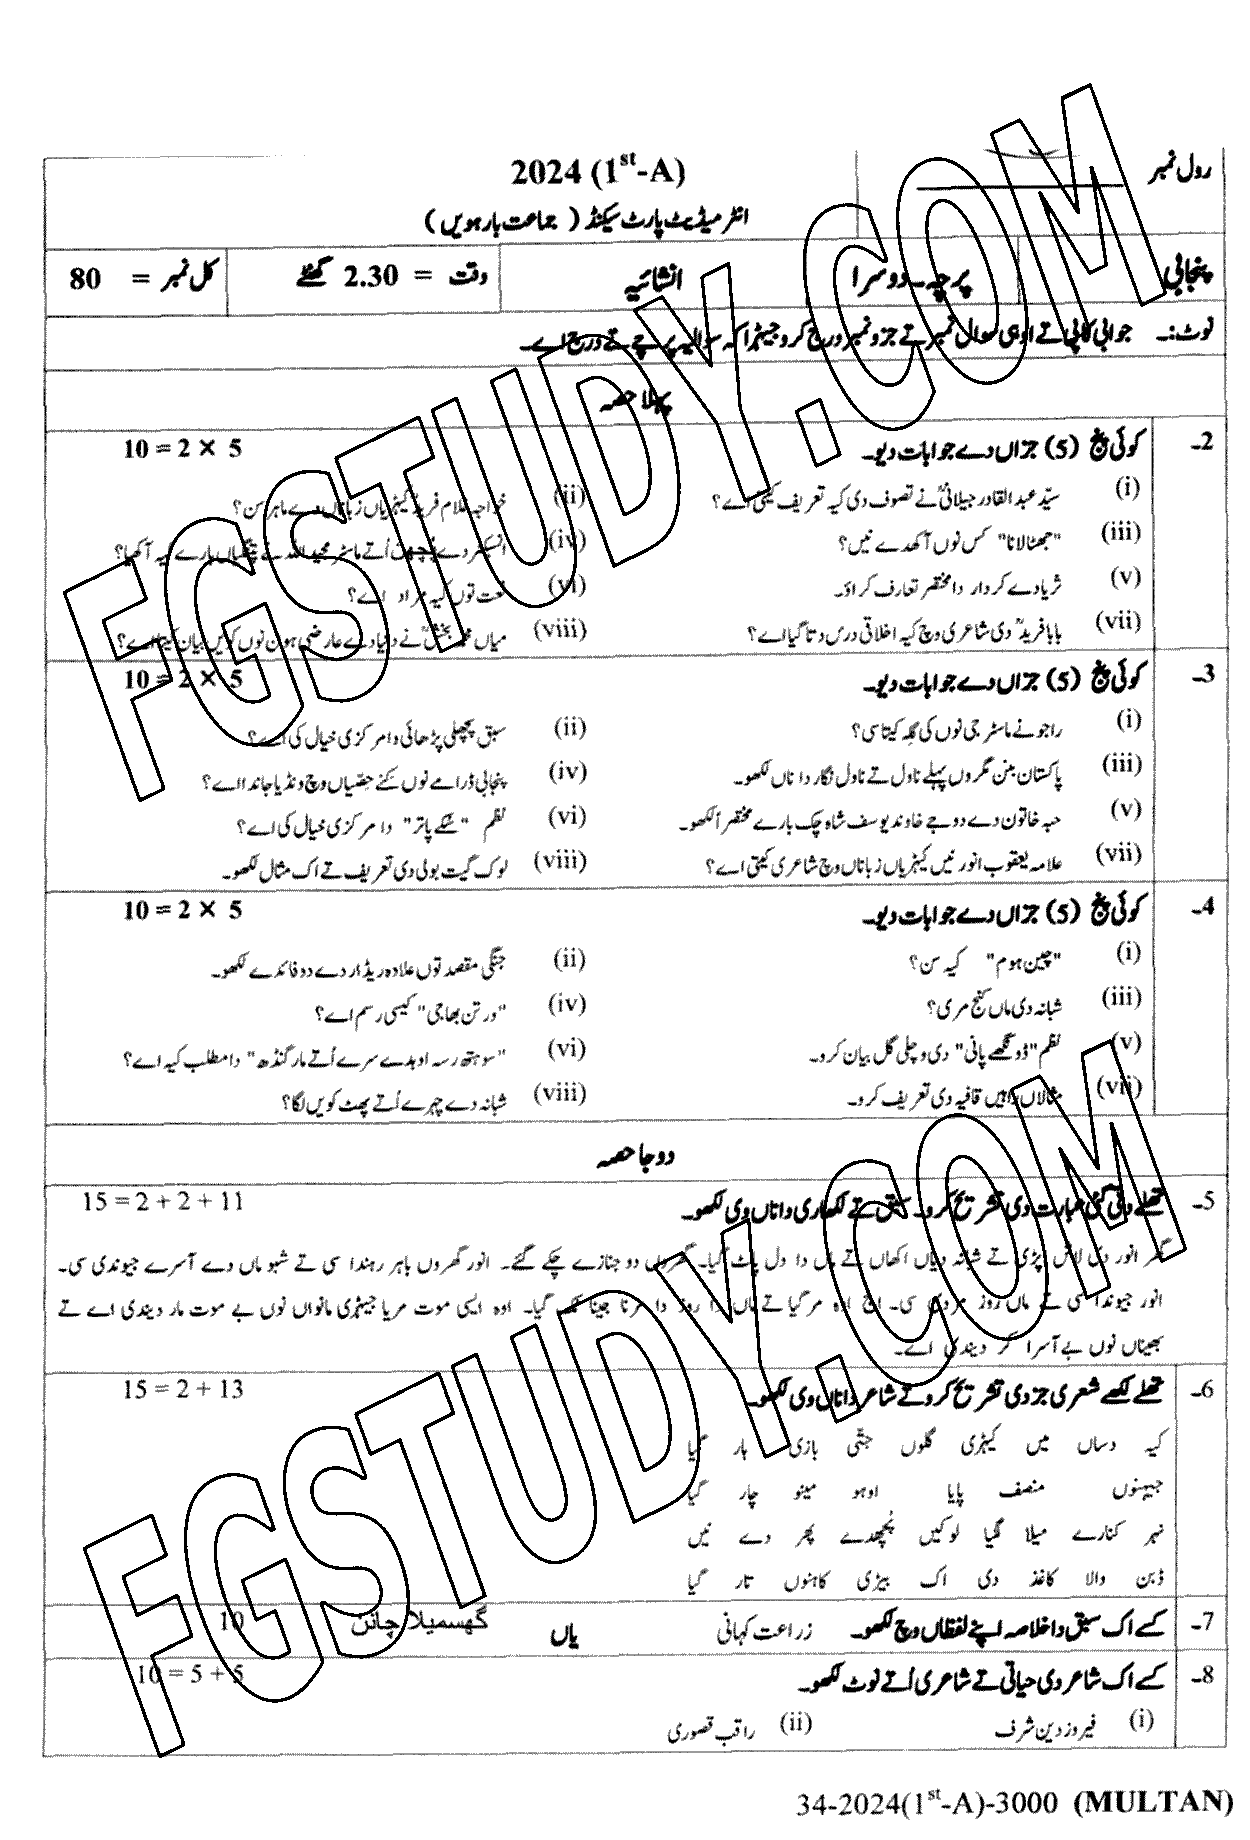 رول نمبر
2024 (1st-A)
انٹرمیڈیٹ پارٹ سیکنڈ ( جماعت بارھویں )
پنجابی پرچہ۔دوسرا انشائیہ وقت = 2.30 گھنٹے کل نمبر = 80
نوٹ:۔ جوابی کاپی تے اوہی سوال نمبر تے جزو نمبر درج کرو جیہڑا کہ سوالیہ پرچے تے درج اے۔
پہلا حصہ
2۔ کوئی پنج (5) جزاں دے جوابات دیو۔ 10 = 2 × 5
(i) سیّد عبدالقادر جیلانیؒ نے تصوف دی کیہ تعریف کیتی اے؟ (ii) خواجہ غلام فریدؒ کیہڑیاں زباناں دے ماہر سن؟
(iii) "جھٹالانا" کس نوں آکھدے نیں؟ (iv) انسپکٹر دے پچھن اُتے ماسٹر مجید اللہ نے بارے کیہ آکھیا؟
(v) ثریا دے کردار دا مختصر تعارف کراؤ۔ (vi) نعت توں کیہ مراد اے؟
(vii) بابا فریدؒ دی شاعری وچ کیہ اخلاقی درس دتا گیا اے؟ (viii) میاں محمد بخشؒ نے دنیا دے عارضی ہون نوں کویں بیان کیتا اے؟
3۔ کوئی پنج (5) جزاں دے جوابات دیو۔ 10 = 2 × 5
(i) راجو نے ماسٹر جی نوں کی گلہ کیتا سی؟ (ii) سبق پچھلی پڑھائی دا مرکزی خیال کی اے؟
(iii) پاکستان بنن مگروں پہلے ناول تے ناول نگار دا ناں لکھو۔ (iv) پنجابی ڈرامے نوں کنے حصّیاں وچ ونڈیا جاندا اے؟
(v) حبہ خاتون دے دوجے خاوند یوسف شاہ چک بارے مختصراً لکھو۔ (vi) نظم "سُکے پاتر" دا مرکزی خیال کی اے؟
(vii) علامہ یعقوب انور نیں کیہڑیاں زباناں وچ شاعری کیتی اے؟ (viii) لوک گیت بولی دی تعریف تے اک مثال لکھو۔
4۔ کوئی پنج (5) جزاں دے جوابات دیو۔ 10 = 2 × 5
(i) "چین ہوم" کیہ سن؟ (ii) جنگی مقصد توں علاوہ ریڈار دے دو فائدے لکھو۔
(iii) شبانہ دی ماں کنج مری؟ (iv) "ورتن بھاجی" کیسی رسم اے؟
(v) نظم "ڈونگھے پانی" دی وچلی گل بیان کرو۔ (vi) "سوہتھ رسہ اوہدے سرے اُتے مار گنڈھ" دا مطلب کیہ اے؟
(vii) مثالاں راہیں قافیہ دی تعریف کرو۔ (viii) شبانہ دے چہرے اُتے پھٹ کویں لگا؟
دوجا حصہ
5۔ تھلے دتی گئی عبارت دی تشریح کرو۔ سبق تے لکھاری دا ناں وی لکھو۔ 15 = 2 + 2 + 11
گھر انور دی لاش پڑی تے شبانہ دیاں اکھاں تے ماں دا دل پاٹ گیا۔ گھروں دو جنازے چکے گئے۔ انور گھروں باہر رہندا سی تے شبو ماں دے آسرے جیوندی سی۔
انور جیوندا سی تے ماں روز مردی سی۔ اج اوہ مر گیا تے ماں دا روز دا مرنا جینا مُک گیا۔ اوہ ایسی موت مریا جیہڑی مانواں نوں بے موت مار دیندی اے تے
بھیناں نوں بے آسرا کر دیندی اے۔
6۔ تھلے لکھے شعری جز دی تشریح کرو تے شاعر دا ناں وی لکھو۔ 15 = 2 + 13
کیہ دساں میں کیہڑی گلوں جتّی بازی ہار گیا
جیہنوں منصف پایا اوہو مینو چار گیا
نہر کنارے میلا لگیا لوکیں پُچھدے پھر دے نیں
ڈبن والا کاغذ دی اک بیڑی کاہنوں تار گیا
7۔ کسے اک سبق دا خلاصہ اپنے لفظاں وچ لکھو۔ زراعت کہانی یاں گھسمیلا چانن 10
8۔ کسے اک شاعر دی حیاتی تے شاعری اُتے نوٹ لکھو۔ 10 = 5 + 5
(i) فیروز دین شرف (ii) راقب قصوری
34-2024(1st-A)-3000 (MULTAN)
FGSTUDY.COM
FGSTUDY.COM